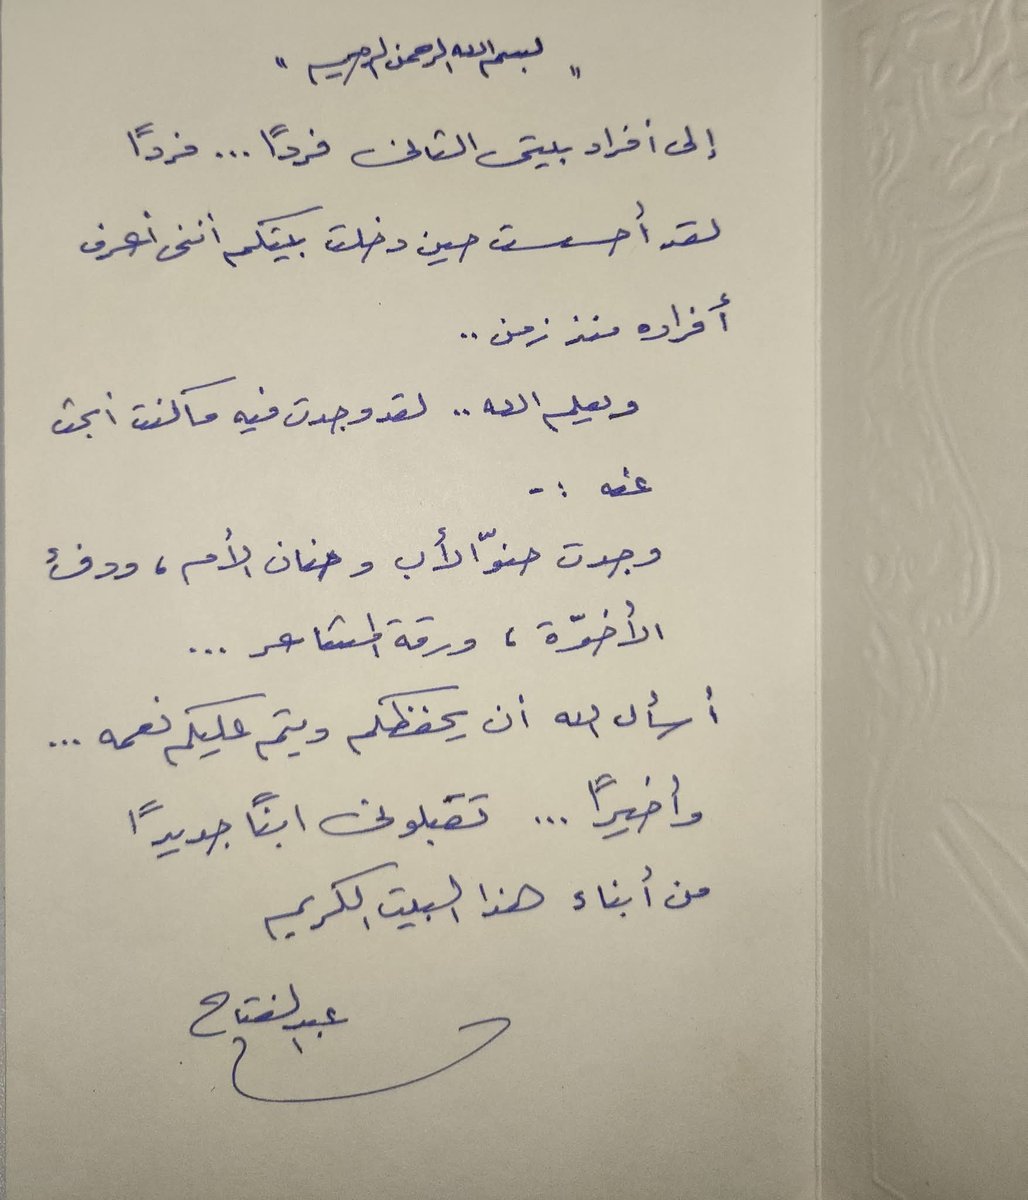 " بسم الله الرحمن الرحيم "
إلى أفراد بيتى الثانى فردًا ... فردًا
لقد أحسست حين دخلت بيتكم أننى أعرف
أفراده منذ زمن ..
ويعلم الله .. لقد وجدت فيه ما كنت أبحث
عنه :-
وجدت حنوّ الأب وحنان الأم ، ودفء
الأخوّة ، ورقة المشاعر ...
أسأل الله أن يحفظكم ويتم عليكم نعمه ...
وأخيرًا ... تقبلونى ابنًا جديدًا
من أبناء هذا البيت الكريم
عبدالفتاح